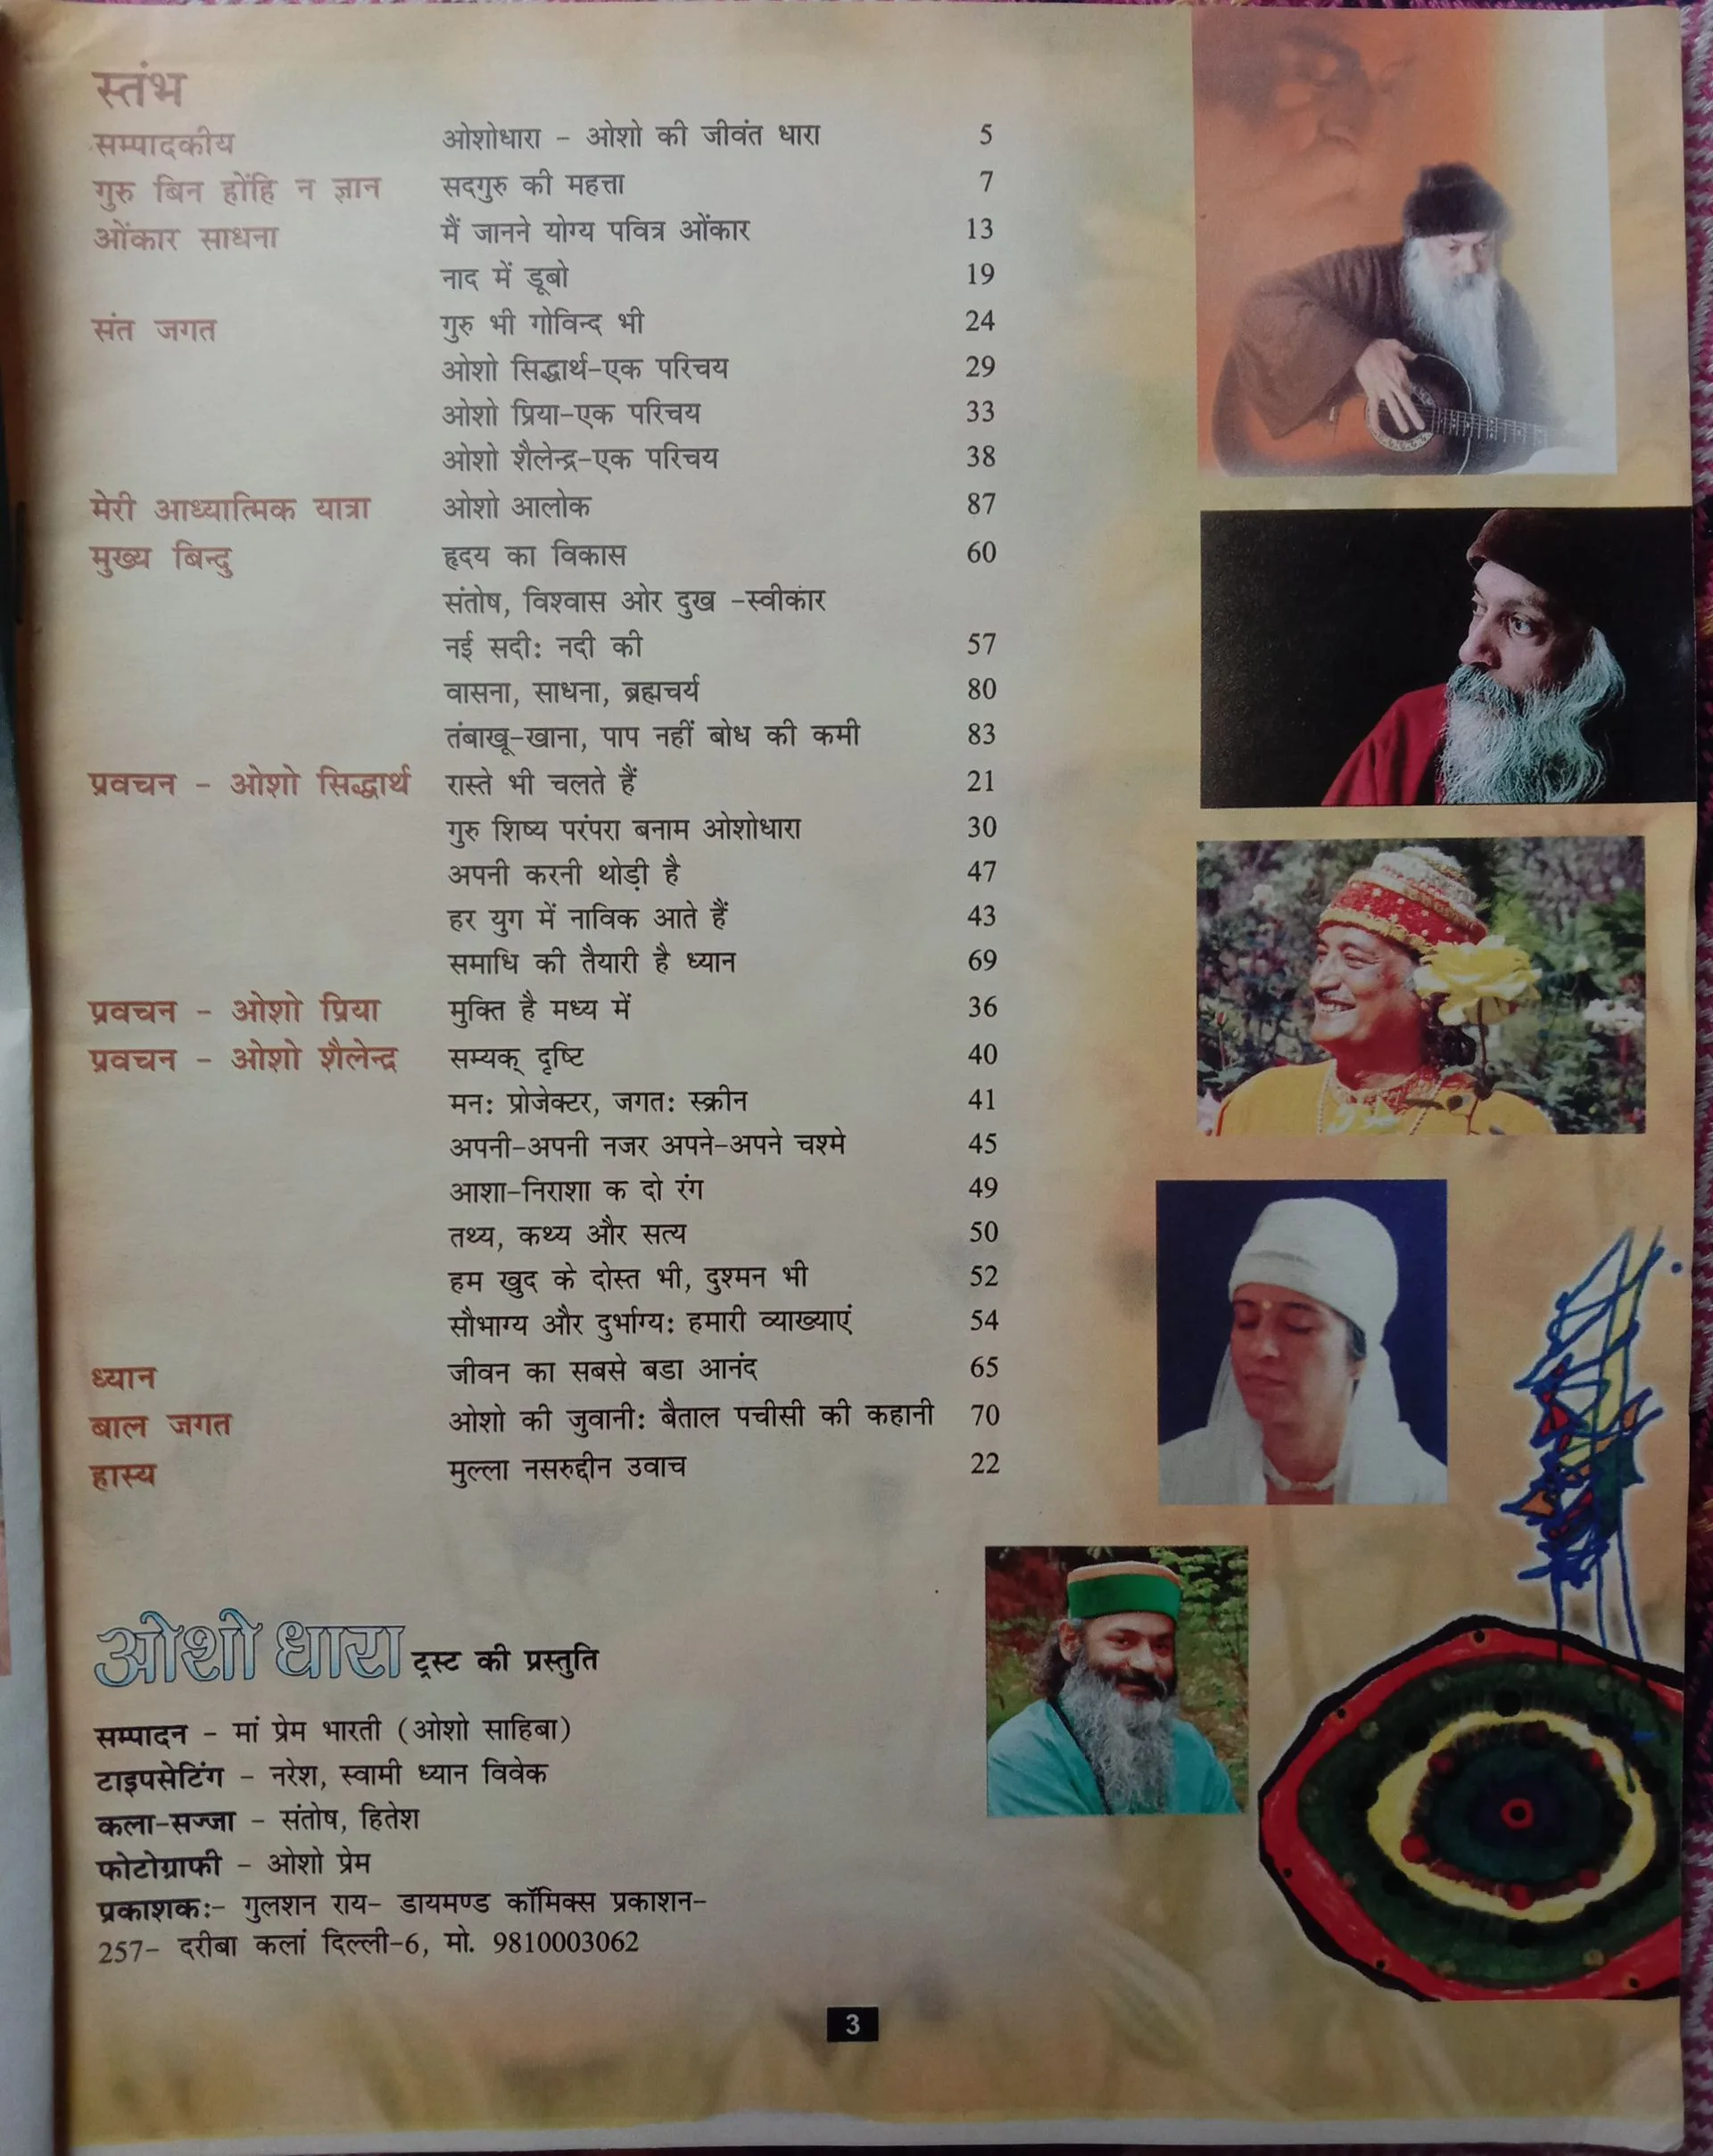 स्तंभ
सम्पादकीय ओशोधारा - ओशो की जीवंत धारा 5
गुरु बिन होंहि न ज्ञान सदगुरु की महत्ता 7
ओंकार साधना मैं जानने योग्य पवित्र ओंकार 13
नाद में डूबो 19
संत जगत गुरु भी गोविन्द भी 24
ओशो सिद्धार्थ-एक परिचय 29
ओशो प्रिया-एक परिचय 33
ओशो शैलेन्द्र-एक परिचय 38
मेरी आध्यात्मिक यात्रा ओशो आलोक 87
मुख्य बिन्दु हृदय का विकास 60
संतोष, विश्वास ओर दुख -स्वीकार
नई सदी: नदी की 57
वासना, साधना, ब्रह्मचर्य 80
तंबाखू-खाना, पाप नहीं बोध की कमी 83
प्रवचन - ओशो सिद्धार्थ रास्ते भी चलते हैं 21
गुरु शिष्य परंपरा बनाम ओशोधारा 30
अपनी करनी थोड़ी है 47
हर युग में नाविक आते हैं 43
समाधि की तैयारी है ध्यान 69
प्रवचन - ओशो प्रिया मुक्ति है मध्य में 36
प्रवचन - ओशो शैलेन्द्र सम्यक् दृष्टि 40
मन: प्रोजेक्टर, जगत: स्क्रीन 41
अपनी-अपनी नजर अपने-अपने चश्मे 45
आशा-निराशा क दो रंग 49
तथ्य, कथ्य और सत्य 50
हम खुद के दोस्त भी, दुश्मन भी 52
सौभाग्य और दुर्भाग्य: हमारी व्याख्याएं 54
ध्यान जीवन का सबसे बडा आनंद 65
बाल जगत ओशो की जुवानी: बैताल पचीसी की कहानी 70
हास्य मुल्ला नसरुद्दीन उवाच 22
ओशो धारा ट्रस्ट की प्रस्तुति
सम्पादन - मां प्रेम भारती (ओशो साहिबा)
टाइपसेटिंग - नरेश, स्वामी ध्यान विवेक
कला-सज्जा - संतोष, हितेश
फोटोग्राफी - ओशो प्रेम
प्रकाशक:- गुलशन राय- डायमण्ड कॉमिक्स प्रकाशन-
257- दरीबा कलां दिल्ली-6, मो. 9810003062
3